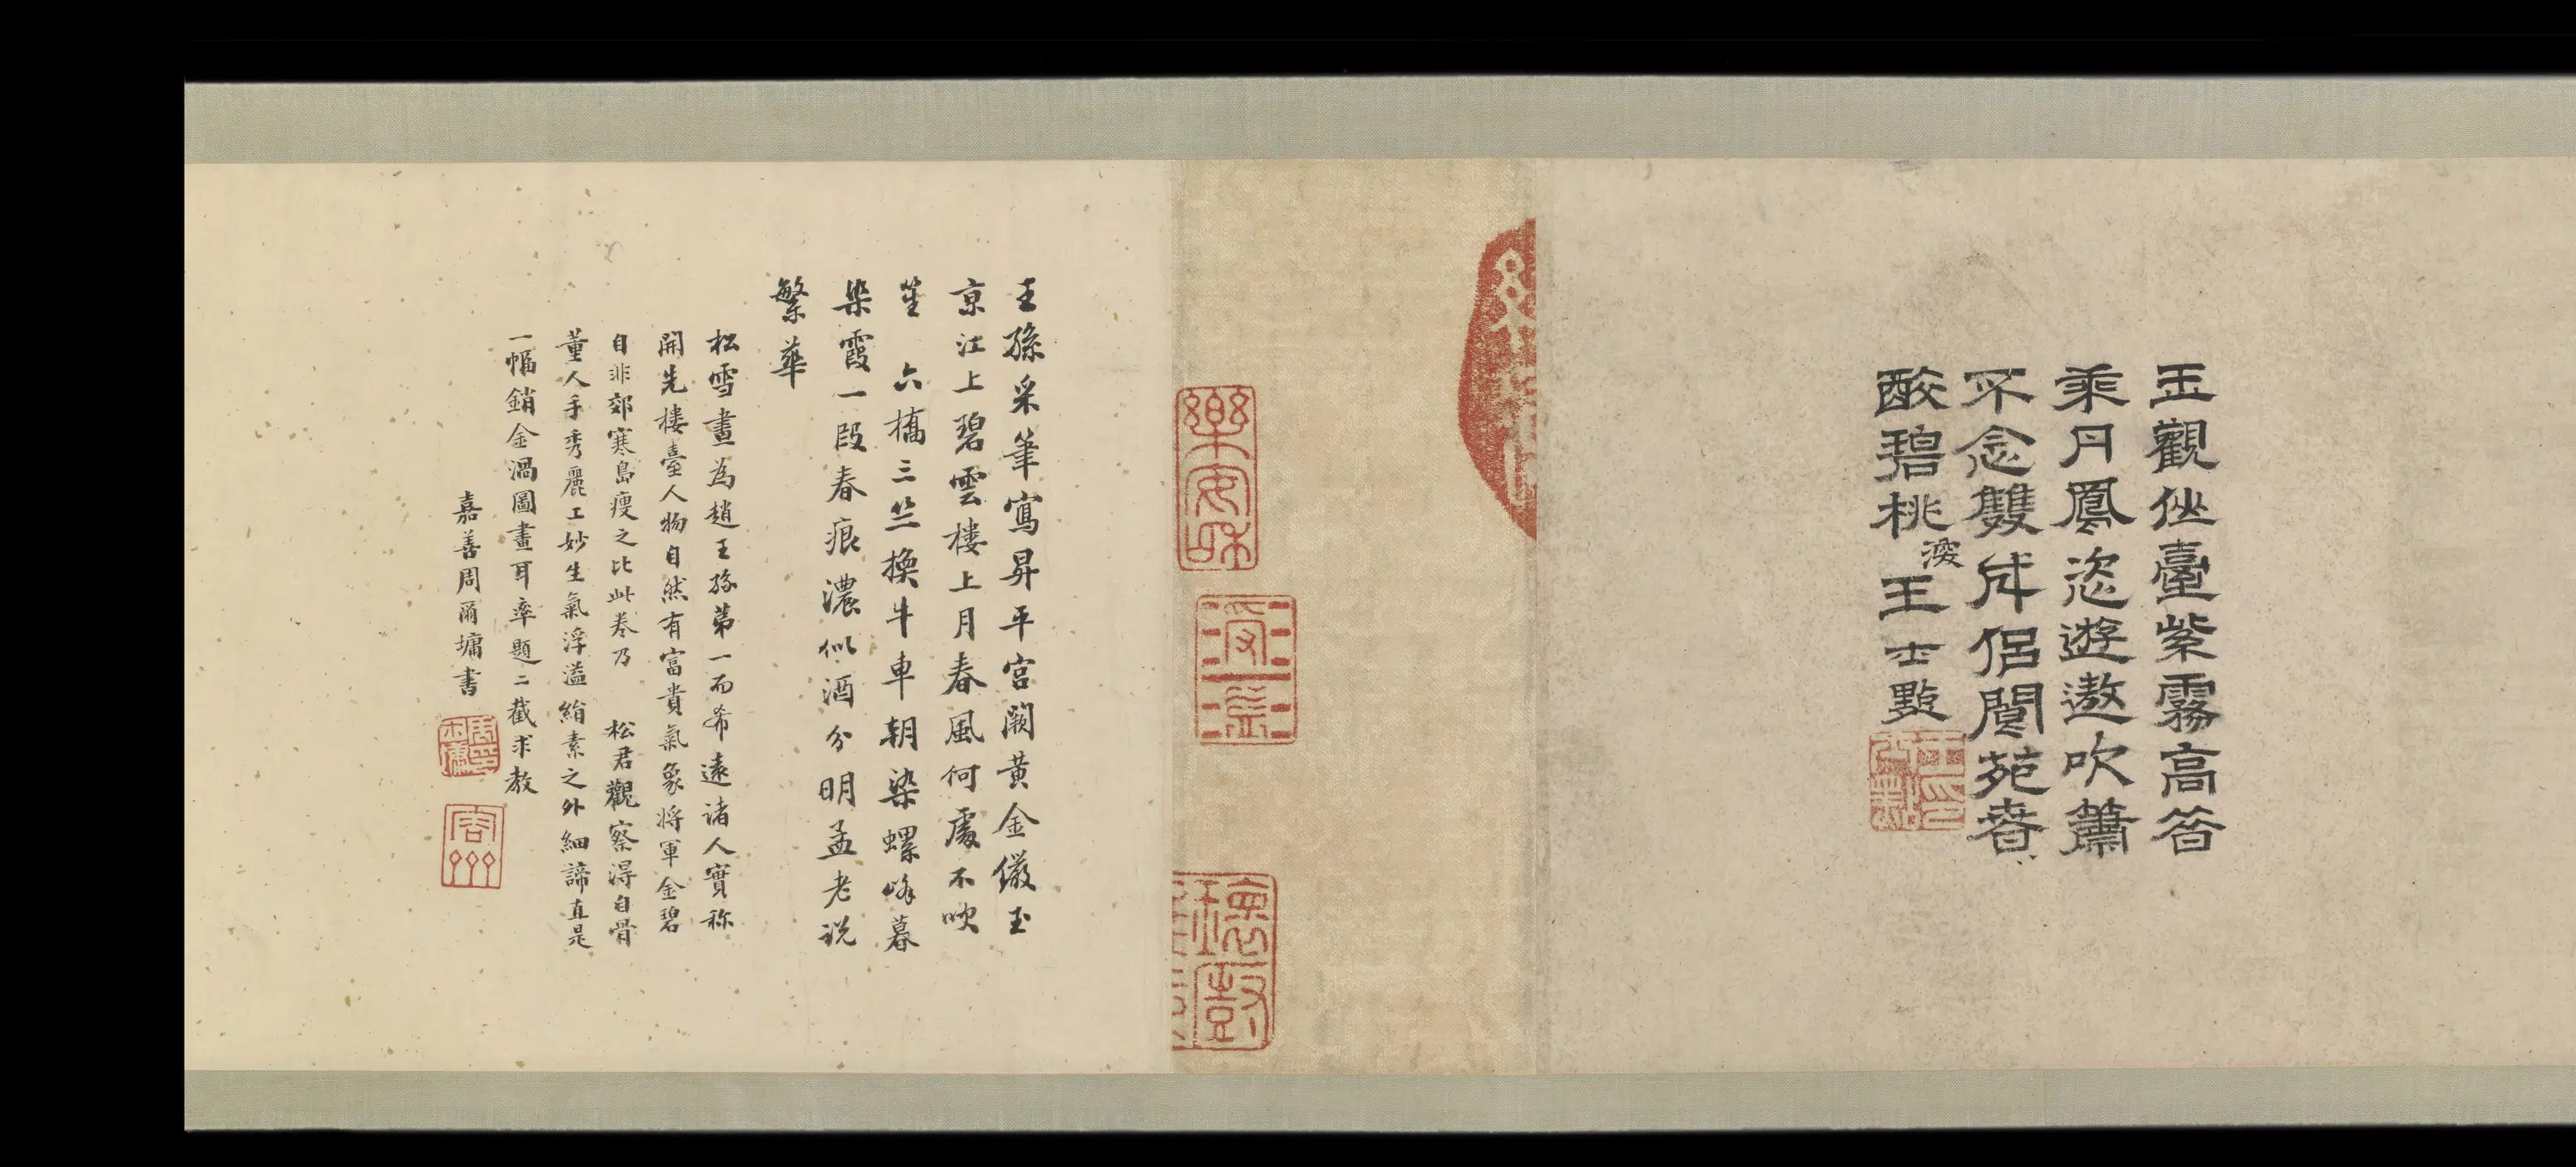 玉觀仙臺紫霧高答
乘丹鳳恣遊遨吹簫
不念雙成侶閬苑春
深
醉碧桃 王士點
王孫采筆寫昇平宮闕黃金儼玉
京江上碧雲樓上月春風何處不吹
笙 六橋三竺換牛車朝染螺峰暮
染霞一段春痕濃似酒分明孟老説
繁華
松雪畫為趙王孫第一而希遠諸人實稱
開先樓臺人物自然有富貴氣象將軍金碧
自非郊寒島瘦之比此卷乃 松君觀察得自骨
董人手秀麗工妙生氣浮溢綃素之外細諦直是
一幅銷金渦圖畫耳率題二截求教
嘉善周爾墉書